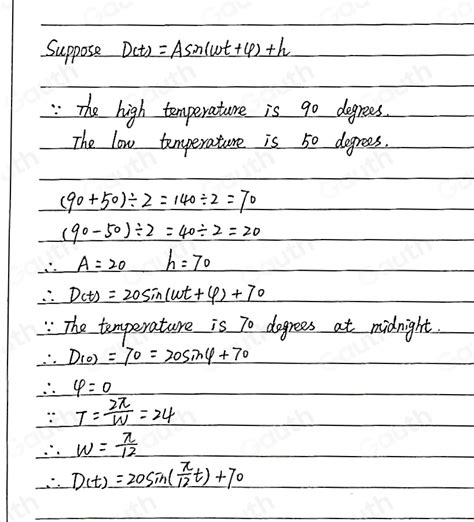 Suppose D(t) = Asin(ωt+φ)+h
∵ The high temperature is 90 degrees.
The low temperature is 50 degrees.
(90+50)÷2 = 140÷2 = 70
(90-50)÷2 = 40÷2 = 20
∴ A=20 h=70
∴ D(t) = 20sin(ωt+φ)+70
∵ The temperature is 70 degrees at midnight.
∴ D(0) = 70 = 20sinφ+70
∴ φ=0
∵ T = 2π/W = 24
∴ W = π/12
∴ D(t) = 20sin(π/12 t)+70